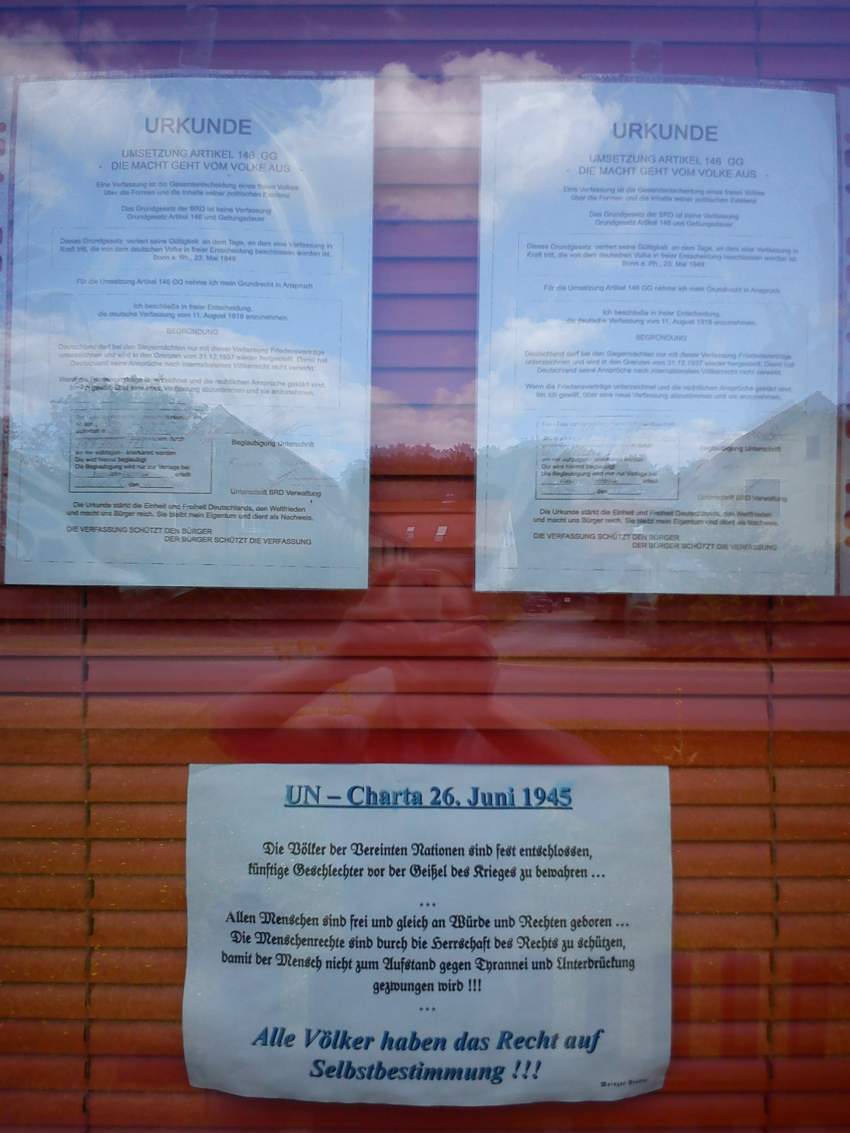 URKUNDE
UMSETZUNG ARTIKEL 146 GG
- DIE MACHT GEHT VOM VOLKE AUS -
Eine Verfassung ist die Gesamtentscheidung eines freien Volkes
über die Formen und die Inhalte seiner politischen Existenz
Das Grundgesetz der BRD ist keine Verfassung
Grundgesetz Artikel 146 und Geltungsdauer
Dieses Grundgesetz verliert seine Gültigkeit an dem Tage, an dem eine Verfassung in
Kraft tritt, die von dem deutschen Volke in freier Entscheidung beschlossen worden ist.
Bonn a. Rh., 23. Mai 1949
Für die Umsetzung Artikel 146 GG nehme ich mein Grundrecht in Anspruch
Ich beschließe in freier Entscheidung,
die deutsche Verfassung vom 11. August 1919 anzunehmen.
BEGRÜNDUNG
Deutschland darf bei den Siegermächten nur mit dieser Verfassung Friedensverträge
unterzeichnen und wird in den Grenzen vom 31.12.1937 wieder hergestellt. Damit hat
Deutschland seine Ansprüche nach internationalem Völkerrecht nicht verwirkt.
Wenn die Friedensverträge unterzeichnet und die rechtlichen Ansprüche geklärt sind,
bin ich gewillt, über eine neue Verfassung abzustimmen und sie anzunehmen.
durch
Beglaubigung Unterschrift
Die wird hiermit beglaubigt
Die Beglaubigung wird nur zur Vorlage bei
erteilt
den
Unterschrift BRD Verwaltung
Die Urkunde stärkt die Einheit und Freiheit Deutschlands, den Weltfrieden
und macht uns Bürger reich. Sie bleibt mein Eigentum und dient als Nachweis.
DIE VERFASSUNG SCHÜTZT DEN BÜRGER
DER BÜRGER SCHÜTZT DIE VERFASSUNG
URKUNDE
UMSETZUNG ARTIKEL 146 GG
- DIE MACHT GEHT VOM VOLKE AUS -
Eine Verfassung ist die Gesamtentscheidung eines freien Volkes
über die Formen und die Inhalte seiner politischen Existenz
Das Grundgesetz der BRD ist keine Verfassung
Grundgesetz Artikel 146 und Geltungsdauer
Dieses Grundgesetz verliert seine Gültigkeit an dem Tage, an dem eine Verfassung in
Kraft tritt, die von dem deutschen Volke in freier Entscheidung beschlossen worden ist.
Bonn a. Rh., 23. Mai 1949
Für die Umsetzung Artikel 146 GG nehme ich mein Grundrecht in Anspruch
Ich beschließe in freier Entscheidung,
die deutsche Verfassung vom 11. August 1919 anzunehmen.
BEGRÜNDUNG
Deutschland darf bei den Siegermächten nur mit dieser Verfassung Friedensverträge
unterzeichnen und wird in den Grenzen vom 31.12.1937 wieder hergestellt. Damit hat
Deutschland seine Ansprüche nach internationalem Völkerrecht nicht verwirkt.
Wenn die Friedensverträge unterzeichnet und die rechtlichen Ansprüche geklärt sind,
bin ich gewillt, über eine neue Verfassung abzustimmen und sie anzunehmen.
Beglaubigung Unterschrift
Die wird hiermit beglaubigt
Die Beglaubigung wird nur zur Vorlage bei
erteilt
den
Unterschrift BRD Verwaltung
Die Urkunde stärkt die Einheit und Freiheit Deutschlands, den Weltfrieden
und macht uns Bürger reich. Sie bleibt mein Eigentum und dient als Nachweis.
DIE VERFASSUNG SCHÜTZT DEN BÜRGER
DER BÜRGER SCHÜTZT DIE VERFASSUNG
UN – Charta 26. Juni 1945
Die Völker der Vereinten Nationen sind fest entschlossen,
künftige Geschlechter vor der Geißel des Krieges zu bewahren ...
...
Allen Menschen sind frei und gleich an Würde und Rechten geboren ...
Die Menschenrechte sind durch die Herrschaft des Rechts zu schützen,
damit der Mensch nicht zum Aufstand gegen Tyrannei und Unterdrückung
gezwungen wird !!!
...
Alle Völker haben das Recht auf
Selbstbestimmung !!!